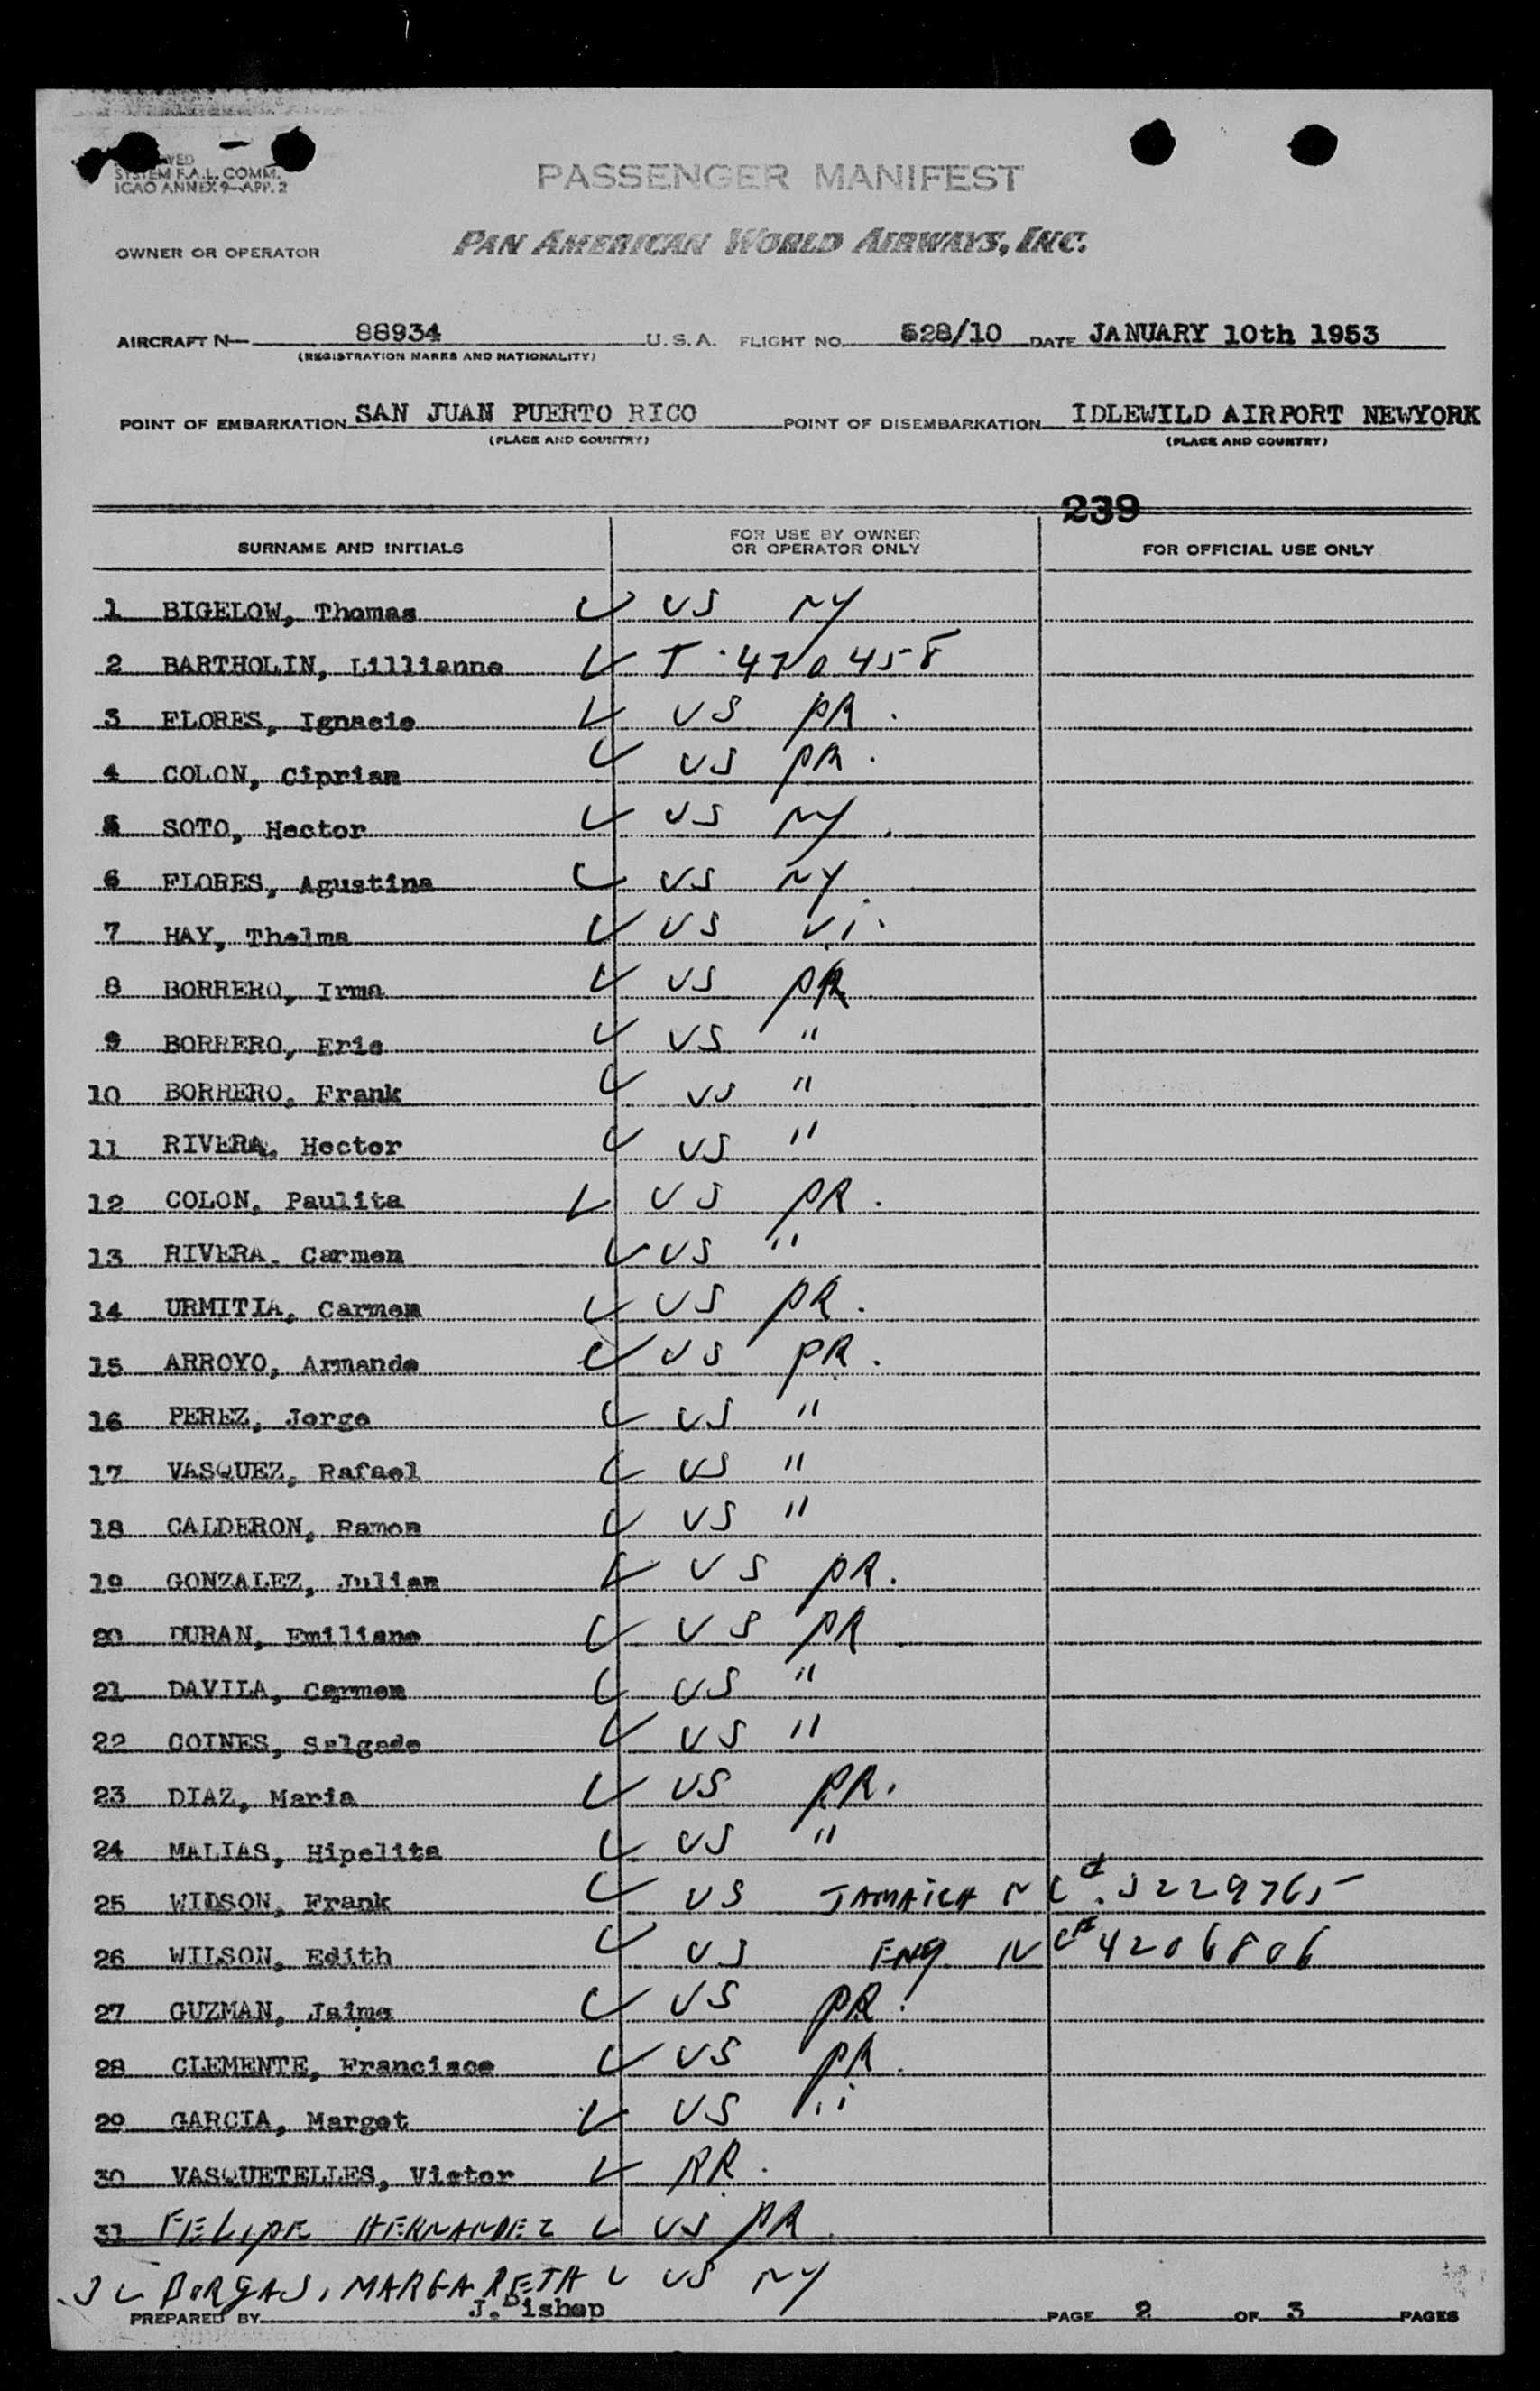 SYSTEM F.A.L. COMM.
ICAO ANNEX 9—APP. 2
PASSENGER MANIFEST
OWNER OR OPERATOR PAN AMERICAN WORLD AIRWAYS, INC.
AIRCRAFT N— 88934 U.S.A. FLIGHT NO. 528/10 DATE JANUARY 10th 1953
(REGISTRATION MARKS AND NATIONALITY)
POINT OF EMBARKATION SAN JUAN PUERTO RICO POINT OF DISEMBARKATION IDLEWILD AIRPORT NEWYORK
(PLACE AND COUNTRY) (PLACE AND COUNTRY)
239
SURNAME AND INITIALS FOR USE BY OWNER OR OPERATOR ONLY FOR OFFICIAL USE ONLY
1 BIGELOW, Thomas ✓ US NY
2 BARTHOLIN, Lillianne ✓ T.470458
3 FLORES, Ignacio ✓ US PR.
4 COLON, Ciprian ✓ US PR.
5 SOTO, Hector ✓ US NY.
6 FLORES, Agustina ✓ US NY.
7 HAY, Thelma ✓ US V.I.
8 BORRERO, Irma ✓ US PR
9 BORRERO, Eric ✓ US "
10 BORRERO, Frank ✓ US "
11 RIVERA, Hector ✓ US "
12 COLON, Paulita ✓ US PR.
13 RIVERA. Carmen ✓ US "
14 URMITIA, Carmen ✓ US PR.
15 ARROYO, Armando ✓ US PR.
16 PEREZ, Jorge ✓ US "
17 VASQUEZ, Rafael ✓ US "
18 CALDERON, Ramon ✓ US "
19 GONZALEZ, Julian ✓ US PR.
20 DURAN, Emiliano ✓ US PR
21 DAVILA, Carmen ✓ US "
22 GOINES, Salgado ✓ US "
23 DIAZ, Maria ✓ US PR.
24 MALIAS, Hipolita ✓ US "
25 WIDSON, Frank ✓ US JAMAICA NC#.5229765
26 WILSON, Edith ✓ US ENG NC# 4206806
27 GUZMAN, Jaime ✓ US PR.
28 CLEMENTE, Francisco ✓ US PR.
29 GARCIA, Margot ✓ US "
30 VASQUETELLES, Victor ✓ PR.
31 FELIPE HERNANDEZ ✓ US PR.
32 BORGAS, MARGARETA ✓ US NY
PREPARED BY J. Bishop PAGE 2 OF 3 PAGES